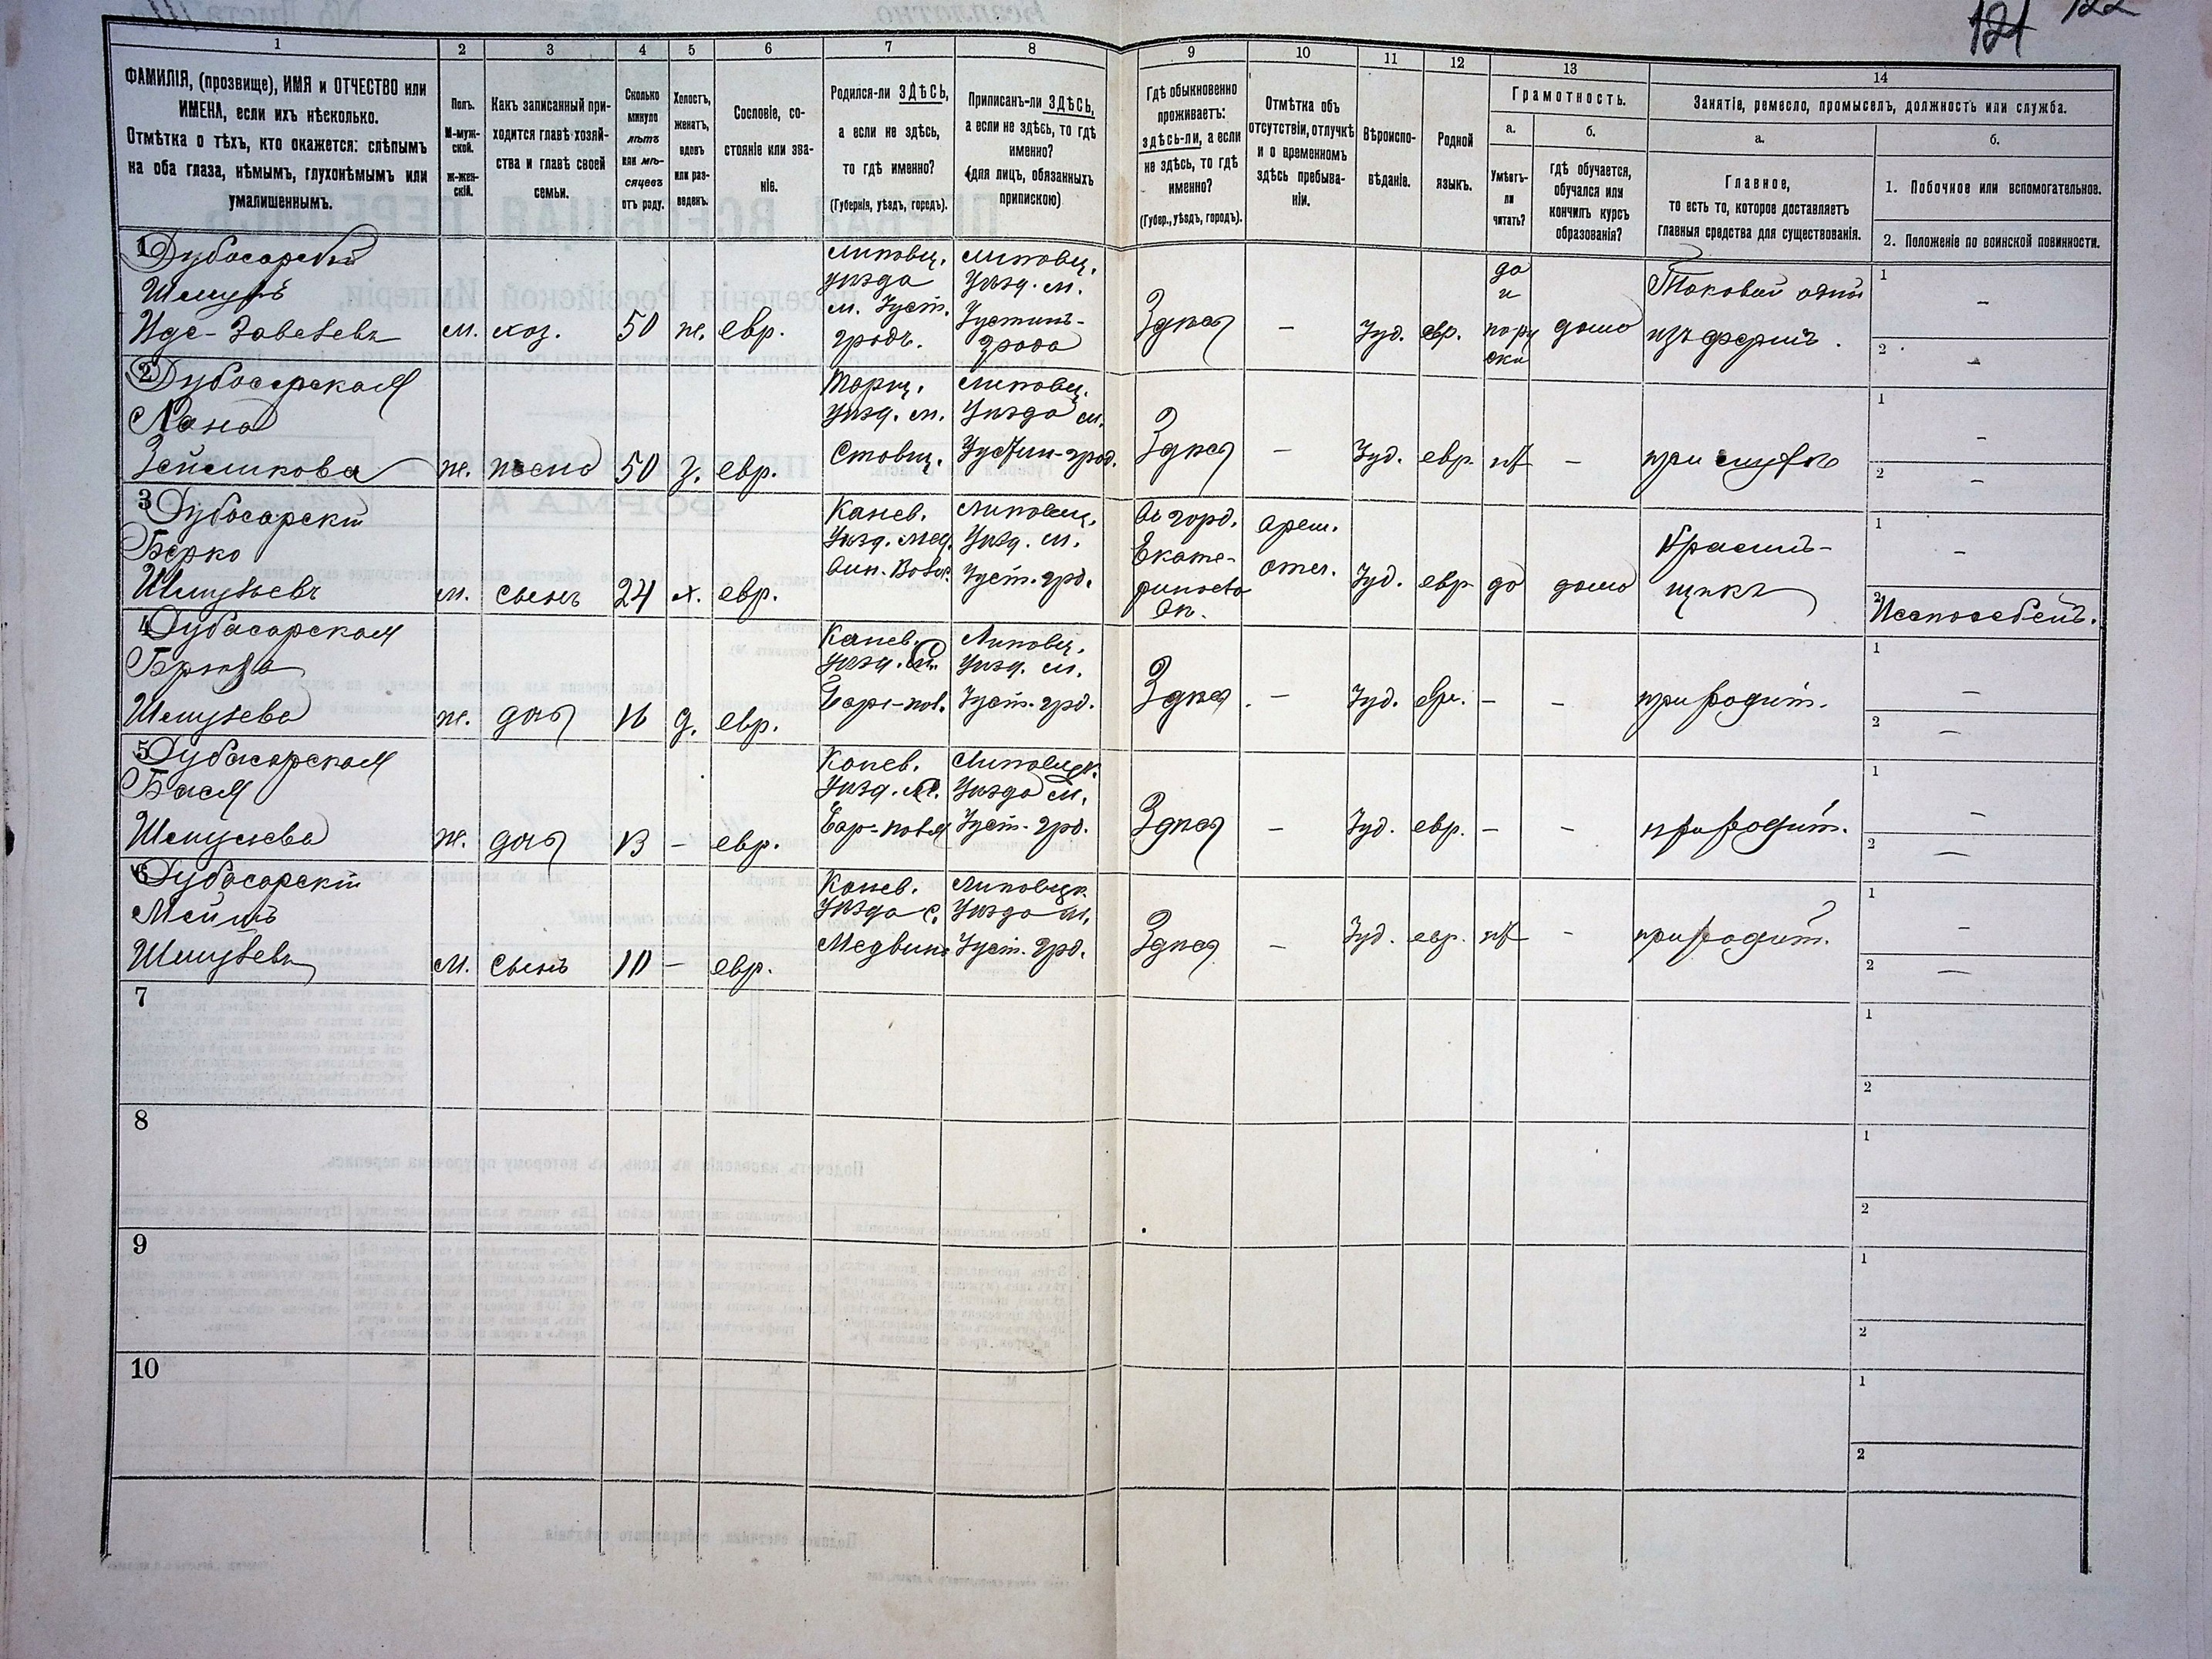 121 122
1
2
3
4
5
6
7
8
9
10
11
12
13
14
ФАМИЛІЯ, (прозвище), ИМЯ и ОТЧЕСТВО или
ИМЕНА, если ихъ нѣсколько.
Отмѣтка о тѣхъ, кто окажется: слѣпымъ
на оба глаза, нѣмымъ, глухонѣмымъ или
умалишеннымъ.
Полъ.
М-муж-
ской.
ж-жен-
скій.
Какъ записанный при-
ходится главѣ хозяй-
ства и главѣ своей
семьи.
Сколько
минуло
лѣтъ
или мѣ-
сяцевъ
отъ роду.
Холостъ,
женатъ,
вдовъ
или раз-
веденъ.
Сословіе, со-
стояніе или зва-
ніе.
Родился-ли ЗДѢСЬ,
а если не здѣсь,
то гдѣ именно?
(Губернія, уѣздъ, городъ).
Приписанъ-ли ЗДѢСЬ,
а если не здѣсь, то гдѣ
именно?
(для лицъ, обязанныхъ
припискою)
Гдѣ обыкновенно
проживаетъ:
здѣсь-ли, а если
не здѣсь, то гдѣ
именно?
(Губер., уѣздъ, городъ).
Отмѣтка объ
отсутствіи, отлучкѣ
и о временномъ
здѣсь пребыва-
ніи.
Вѣроиспо-
вѣданіе.
Родной
языкъ.
Грамотность.
а.
б.
Умѣетъ-
ли
читать?
гдѣ обучается,
обучался или
кончилъ курсъ
образованія?
Занятіе, ремесло, промыселъ, должность или служба.
а.
б.
Главное,
то есть то, которое доставляетъ
главныя средства для существованія.
1. Побочное или вспомогательное.
2. Положеніе по воинской повинности.
1 Дубосарскій
Шмуль
м. хоз. 50 ж. евр.
Липовец.
уѣзда
м. Зуст.
градъ.
Липовец.
Уѣзд. м.
Зустинъ-
града
Здѣсь
–
Іуд. евр.
да
и
по ру
ски
дома
1 –
2 –
2 Дубосарская
Хана
Зейликова
ж. жена 50 з. евр.
Таращ.
уѣзд. м.
Ставищ.
Липовец.
Уѣзда м.
Зустин-град.
Здѣсь – Іуд. евр. нѣт –
при мужѣ
1 –
2 –
3 Дубосарскій
Берко
Шмулевъ
м. сынъ 24 х. евр.
Канев.
Липовец.
Уѣзд. м.
Зуст. грд.
Въ горд.
Екате-
ринослав
Іуд. евр да дома
1 –
2 Неспособенъ.
4 Дубасарская
Шмулева
ж. дочь 16 д. евр.
Канев.
уѣзд.
Липовец.
Уѣзд. м.
Зуст. грд.
Здѣсь. – Іуд. евр. – –
при родит.
1 –
2 –
5 Дубасарская
Бася
Шмулева
ж. дочь 13 – евр.
Канев.
Уѣзд.
Липовецк.
Уѣзда м.
Зуст. грд.
Здѣсь – Іуд. евр. – –
при родит.
1 –
2 –
6 Дубасарскій
Шмулевъ
м. сынъ 10 – евр.
Канев.
Уѣзда с.
Медвин
Липовецк.
Уѣзда м.
Зуст. грд.
Здѣсь – Іуд. евр. нѣт –
при родит.
1 –
2 –
7 1 2
8 1 2
9 1 2
10 1 2